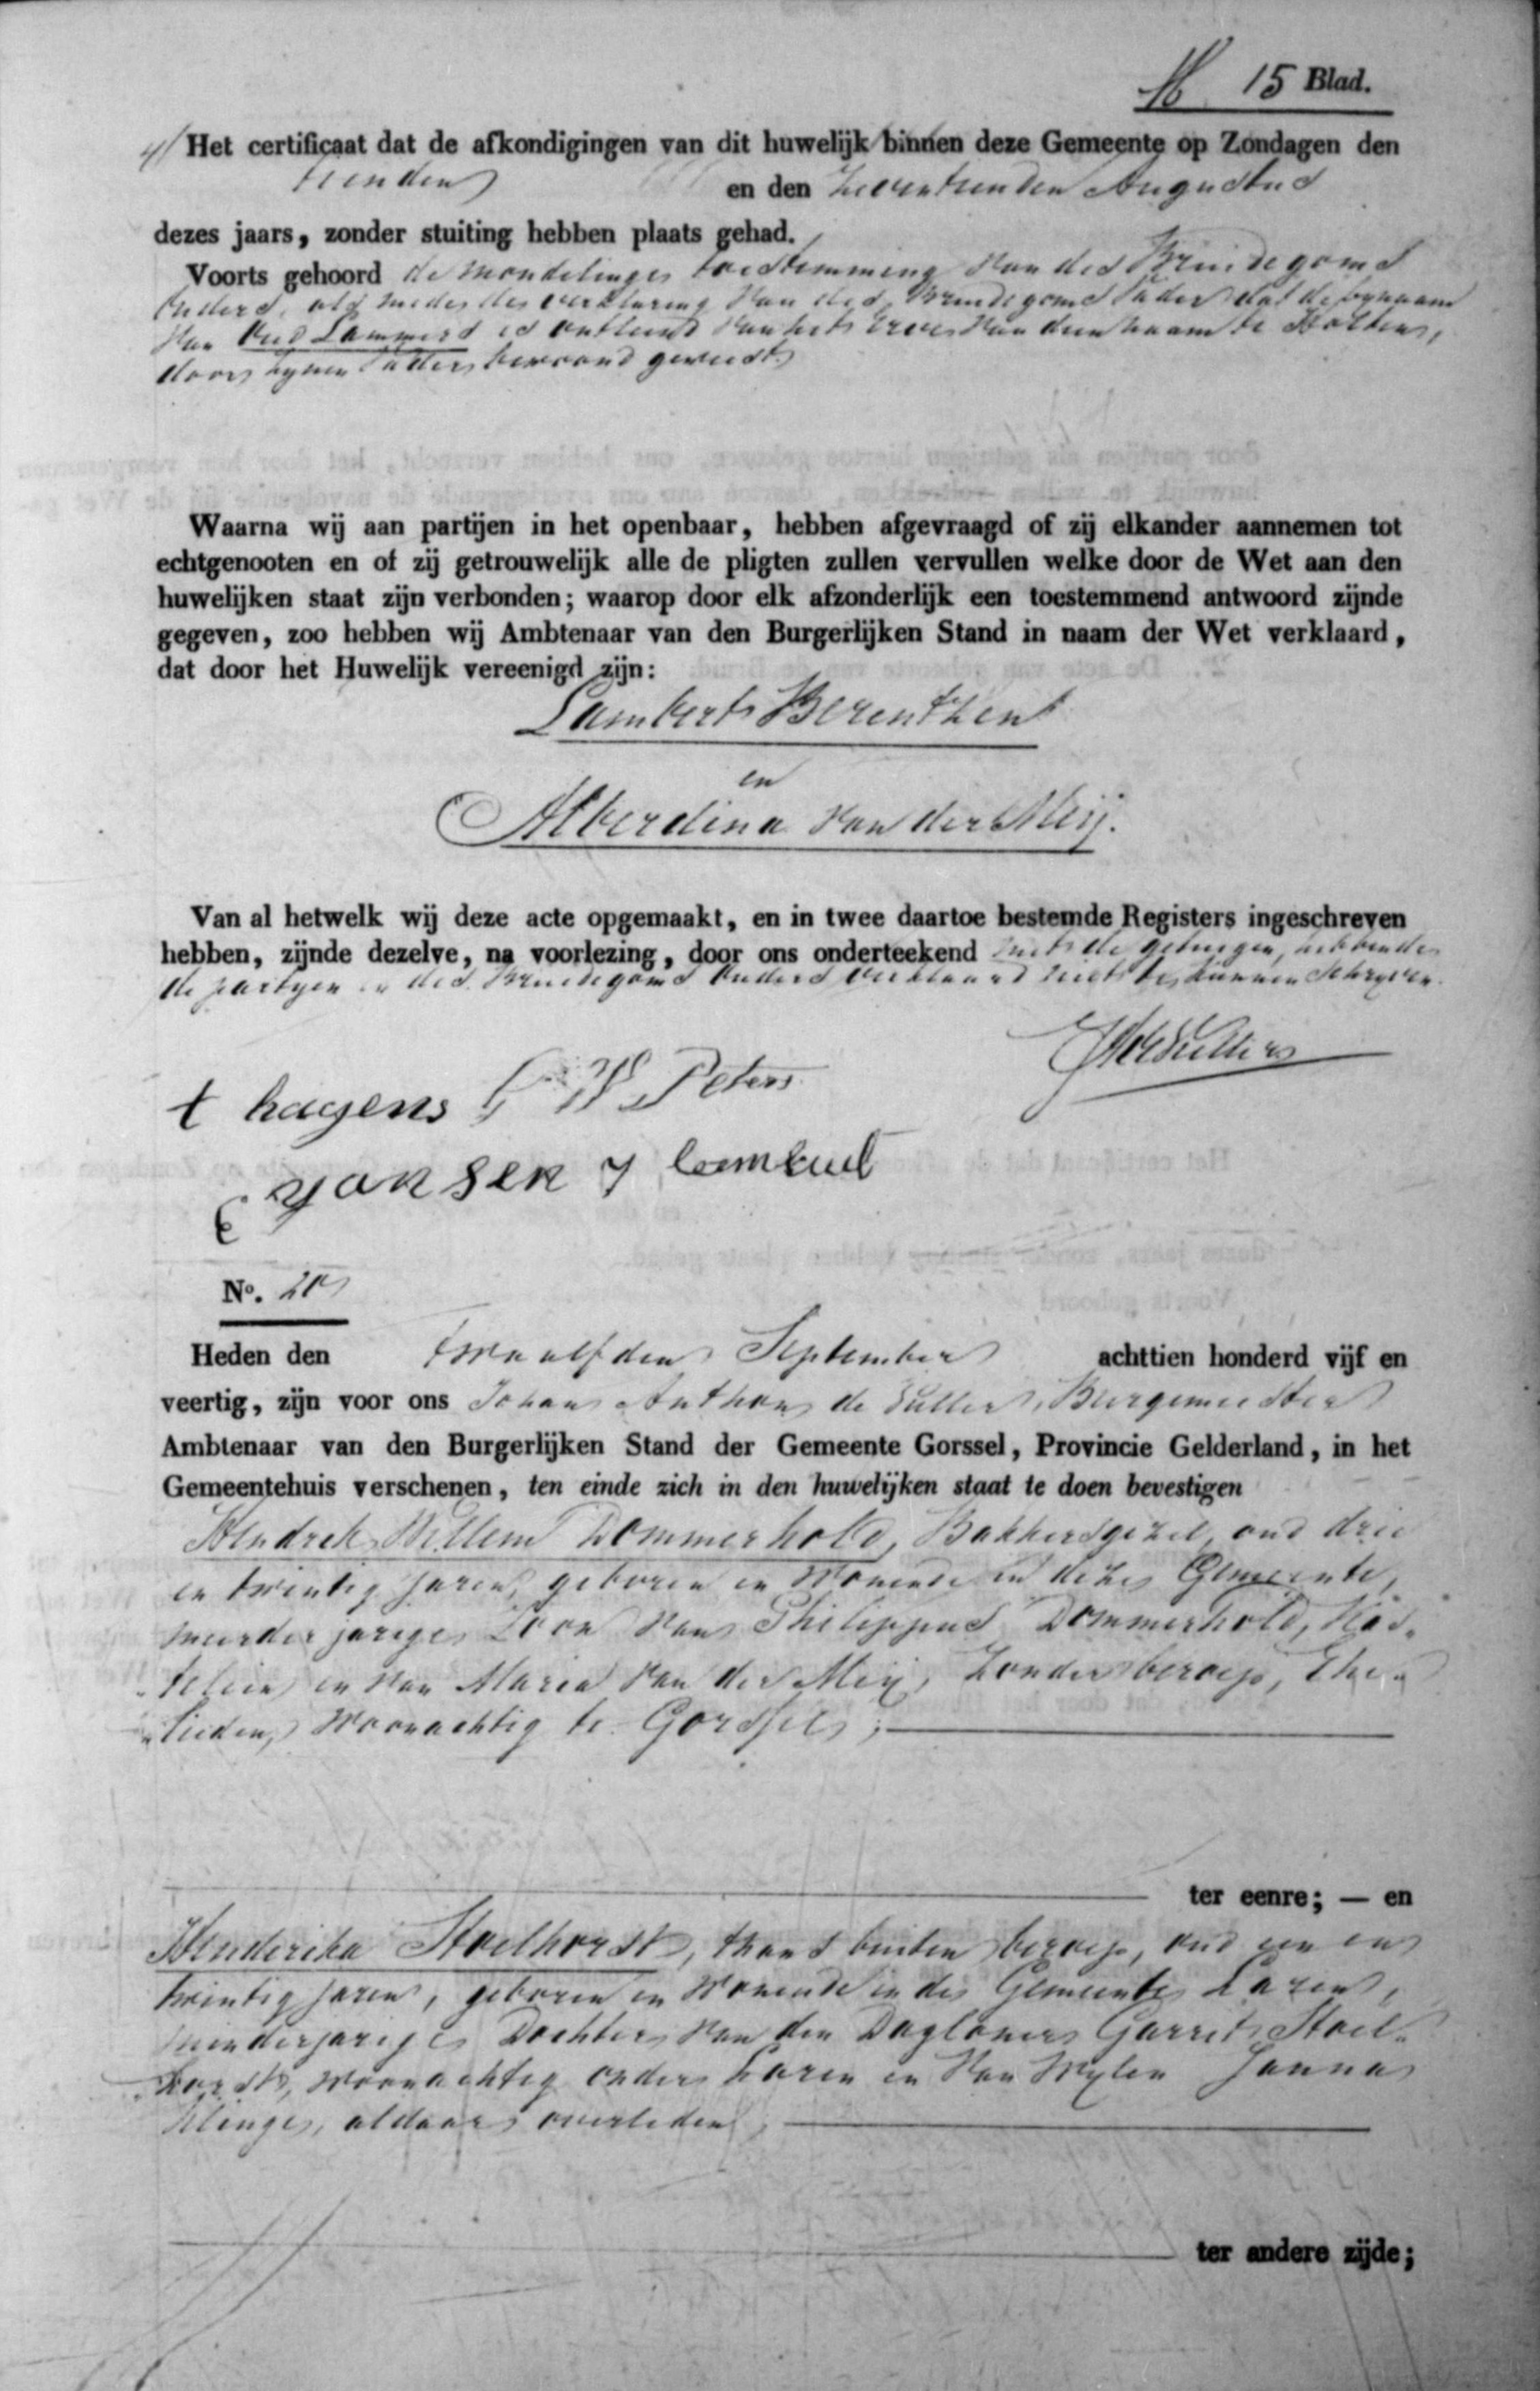 15 Blad.
4/ Het certificaat dat de afkondigingen van dit huwelijk binnen deze Gemeente op Zondagen den
tienden en den zeventienden Augustus
dezes jaars, zonder stuiting hebben plaats gehad.
Voorts gehoord de mondelinge toestemming van des Bruidegoms
Ouders, als mede de verklaring van des Bruidegoms Vader dat de bynaam
van Oud Lammerd is ontleend van het Erve van dien naam te Holten,
door zynen Vader bewoond geweest.
Waarna wij aan partijen in het openbaar, hebben afgevraagd of zij elkander aannemen tot
echtgenooten en of zij getrouwelijk alle de pligten zullen vervullen welke door de Wet aan den
huwelijken staat zijn verbonden; waarop door elk afzonderlijk een toestemmend antwoord zijnde
gegeven, zoo hebben wij Ambtenaar van den Burgerlijken Stand in naam der Wet verklaard,
dat door het Huwelijk vereenigd zijn:
Lambert Berenthen
en
Alberdina van der Meij.
Van al hetwelk wij deze acte opgemaakt, en in twee daartoe bestemde Registers ingeschreven
hebben, zijnde dezelve, na voorlezing, door ons onderteekend met de getuigen, hebbende
de partyen en des Bruidegoms Ouders verklaard niet te kunnen schryven.
t hagens G W Peters
E Jansen
No. 20
Heden den twaalfden September achttien honderd vijf en
veertig, zijn voor ons Johan Anthon de Vuller, Burgemeester
Ambtenaar van den Burgerlijken Stand der Gemeente Gorssel, Provincie Gelderland, in het
Gemeentehuis verschenen, ten einde zich in den huwelijken staat te doen bevestigen
Hendrik Willem Dommerhold, Bakkersgezel, oud drie
en twintig jaren, geboren en wonende in deze Gemeente,
meerderjarige Zoon van Philippus Dommerhold, Kas-
telein en van Maria van der Meij, zonder beroep, Ehe-
lieden, woonachtig te Gorssel;
ter eenre; — en
Henderika Stoelhorst, thans buiten beroep, oud een en
twintig jaren, geboren en wonende in de Gemeente Laren,
minderjarige Dochter van den Daglooner Garrit Stoel-
horst, woonachtig onder Laren en van Wylen Janna
Klinge, aldaar overleden,
ter andere zijde;